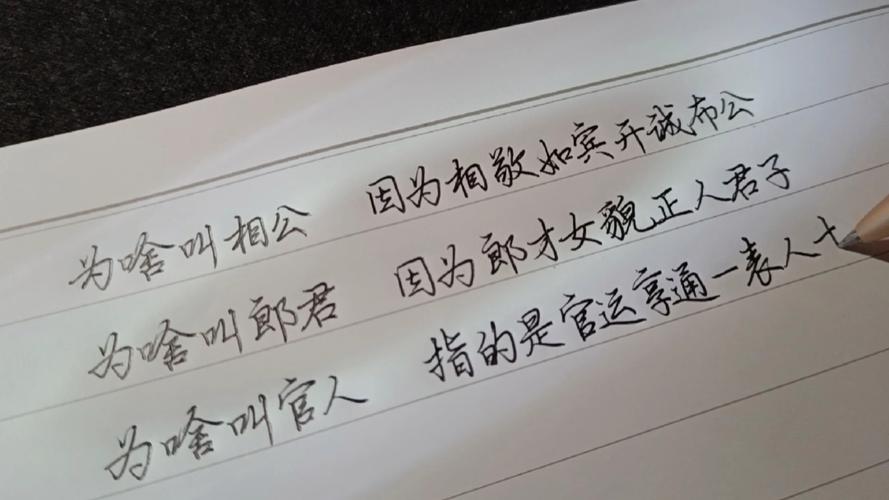 为啥叫相公 因为相敬如宾开诚布公
为啥叫郎君 因为郎才女貌正人君子
为啥叫官人 指的是官运亨通一表人